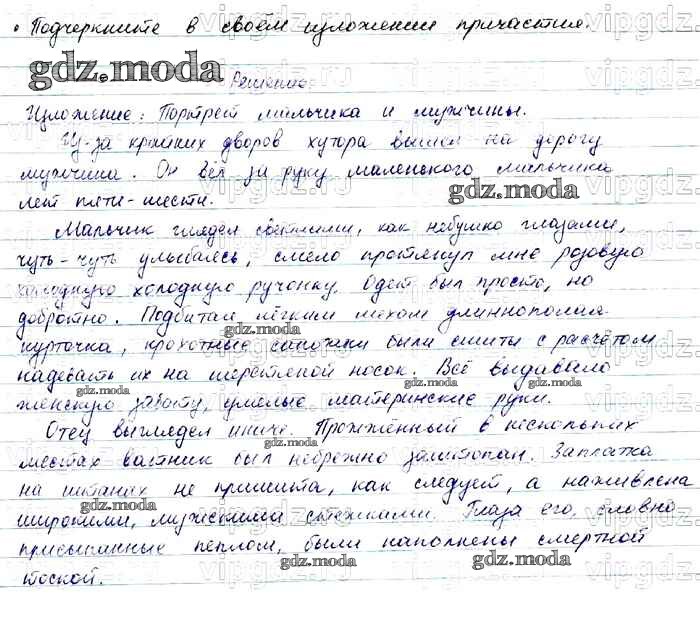 • Подчеркните в своём изложении причастия.
gdz.moda Решение
Изложение: Портрет мальчика и мужчины.
Из-за крайних дворов хутора вышел на дорогу
мужчина. Он вёл за руку маленького мальчика
лет пяти-шести.
Мальчик глядел светлыми, как небушко глазами,
чуть-чуть улыбаясь, смело протянул мне розовую
холодную холодную ручонку. Одет был просто, но
добротно. Подбитая лёгким мехом длиннополая
курточка, крохотные сапожки были сшиты с расчётом
надевать их на шерстяной носок. Всё выдавало
женскую заботу, умелые материнские руки.
Отец выглядел иначе. Прожжённый в нескольких
местах ватник был небрежно заштопан. Заплатка
на штанах не пришита, как следует, а наживлена
широкими, мужскими стежками. Глаза его, словно
присыпанные пеплом, были наполнены смертной
тоской.